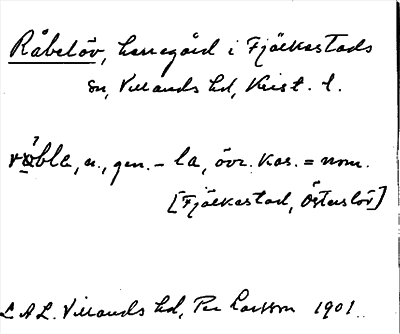 Råbelöv, herregård i Fjälkestads
sn, Villands hd, Krist. l.
n., gen. - la, övr. kas. = nom.
[Fjälkestad, Österslöv]
L A L. Villands hd, Per Larsson 1901.